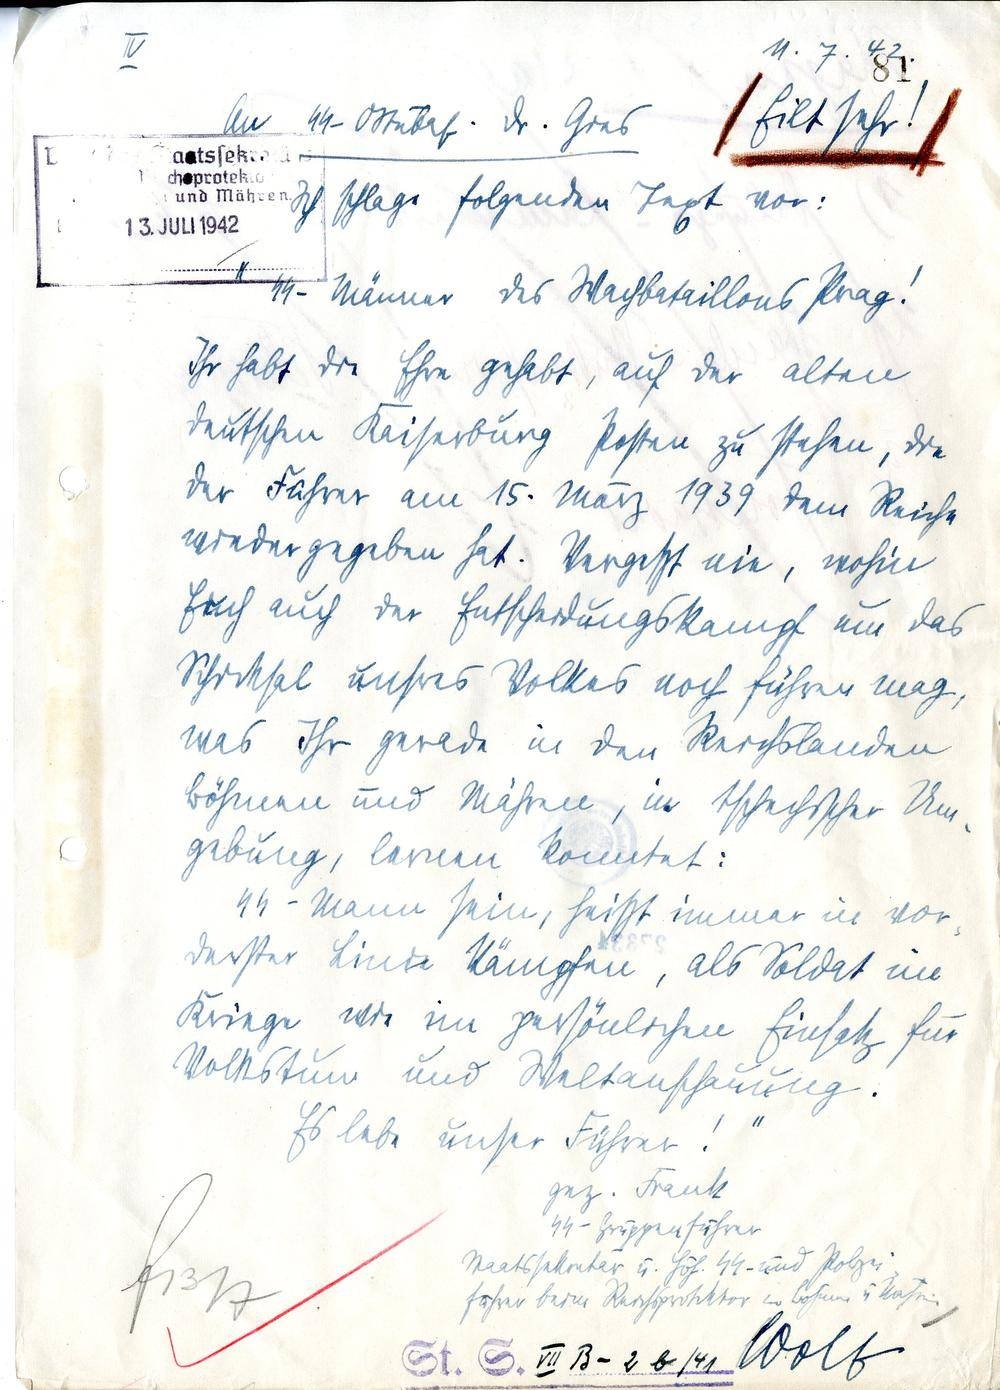 IV
11. 7. 42.
81
An SS-Ostubaf. Dr. Gies
Eilt sehr!
Staatssekretärs
und Mähren
13. JULI 1942
Ich schlage folgenden Text vor:
" SS-Männer des Wachbataillons Prag!
Ihr habt die Ehre gehabt, auf der alten
deutschen Kaiserburg Posten zu stehen, die
der Führer am 15. März 1939 dem Reiche
wiedergegeben hat. Vergeßt nie, wohin
Euch auch der Entscheidungskampf um das
Schicksal unsres Volkes noch führen mag,
was Ihr gerade in den Reichslanden
Böhmen und Mähren, in tschechischer Um-
gebung, lernen konntet:
SS-Mann sein, heißt immer in vor-
derster Linie kämpfen, als Soldat im
Kriege wie im persönlichen Einsatz für
Volkstum und Weltanschauung.
Es lebe unser Führer! "
gez. Frank
SS-Gruppenführer
Staatssekretär u. Höh. SS- und Polizei-
führer beim Reichsprotektor in Böhmen u Mähren
Wolf
St. S. VII B - 2 b /41